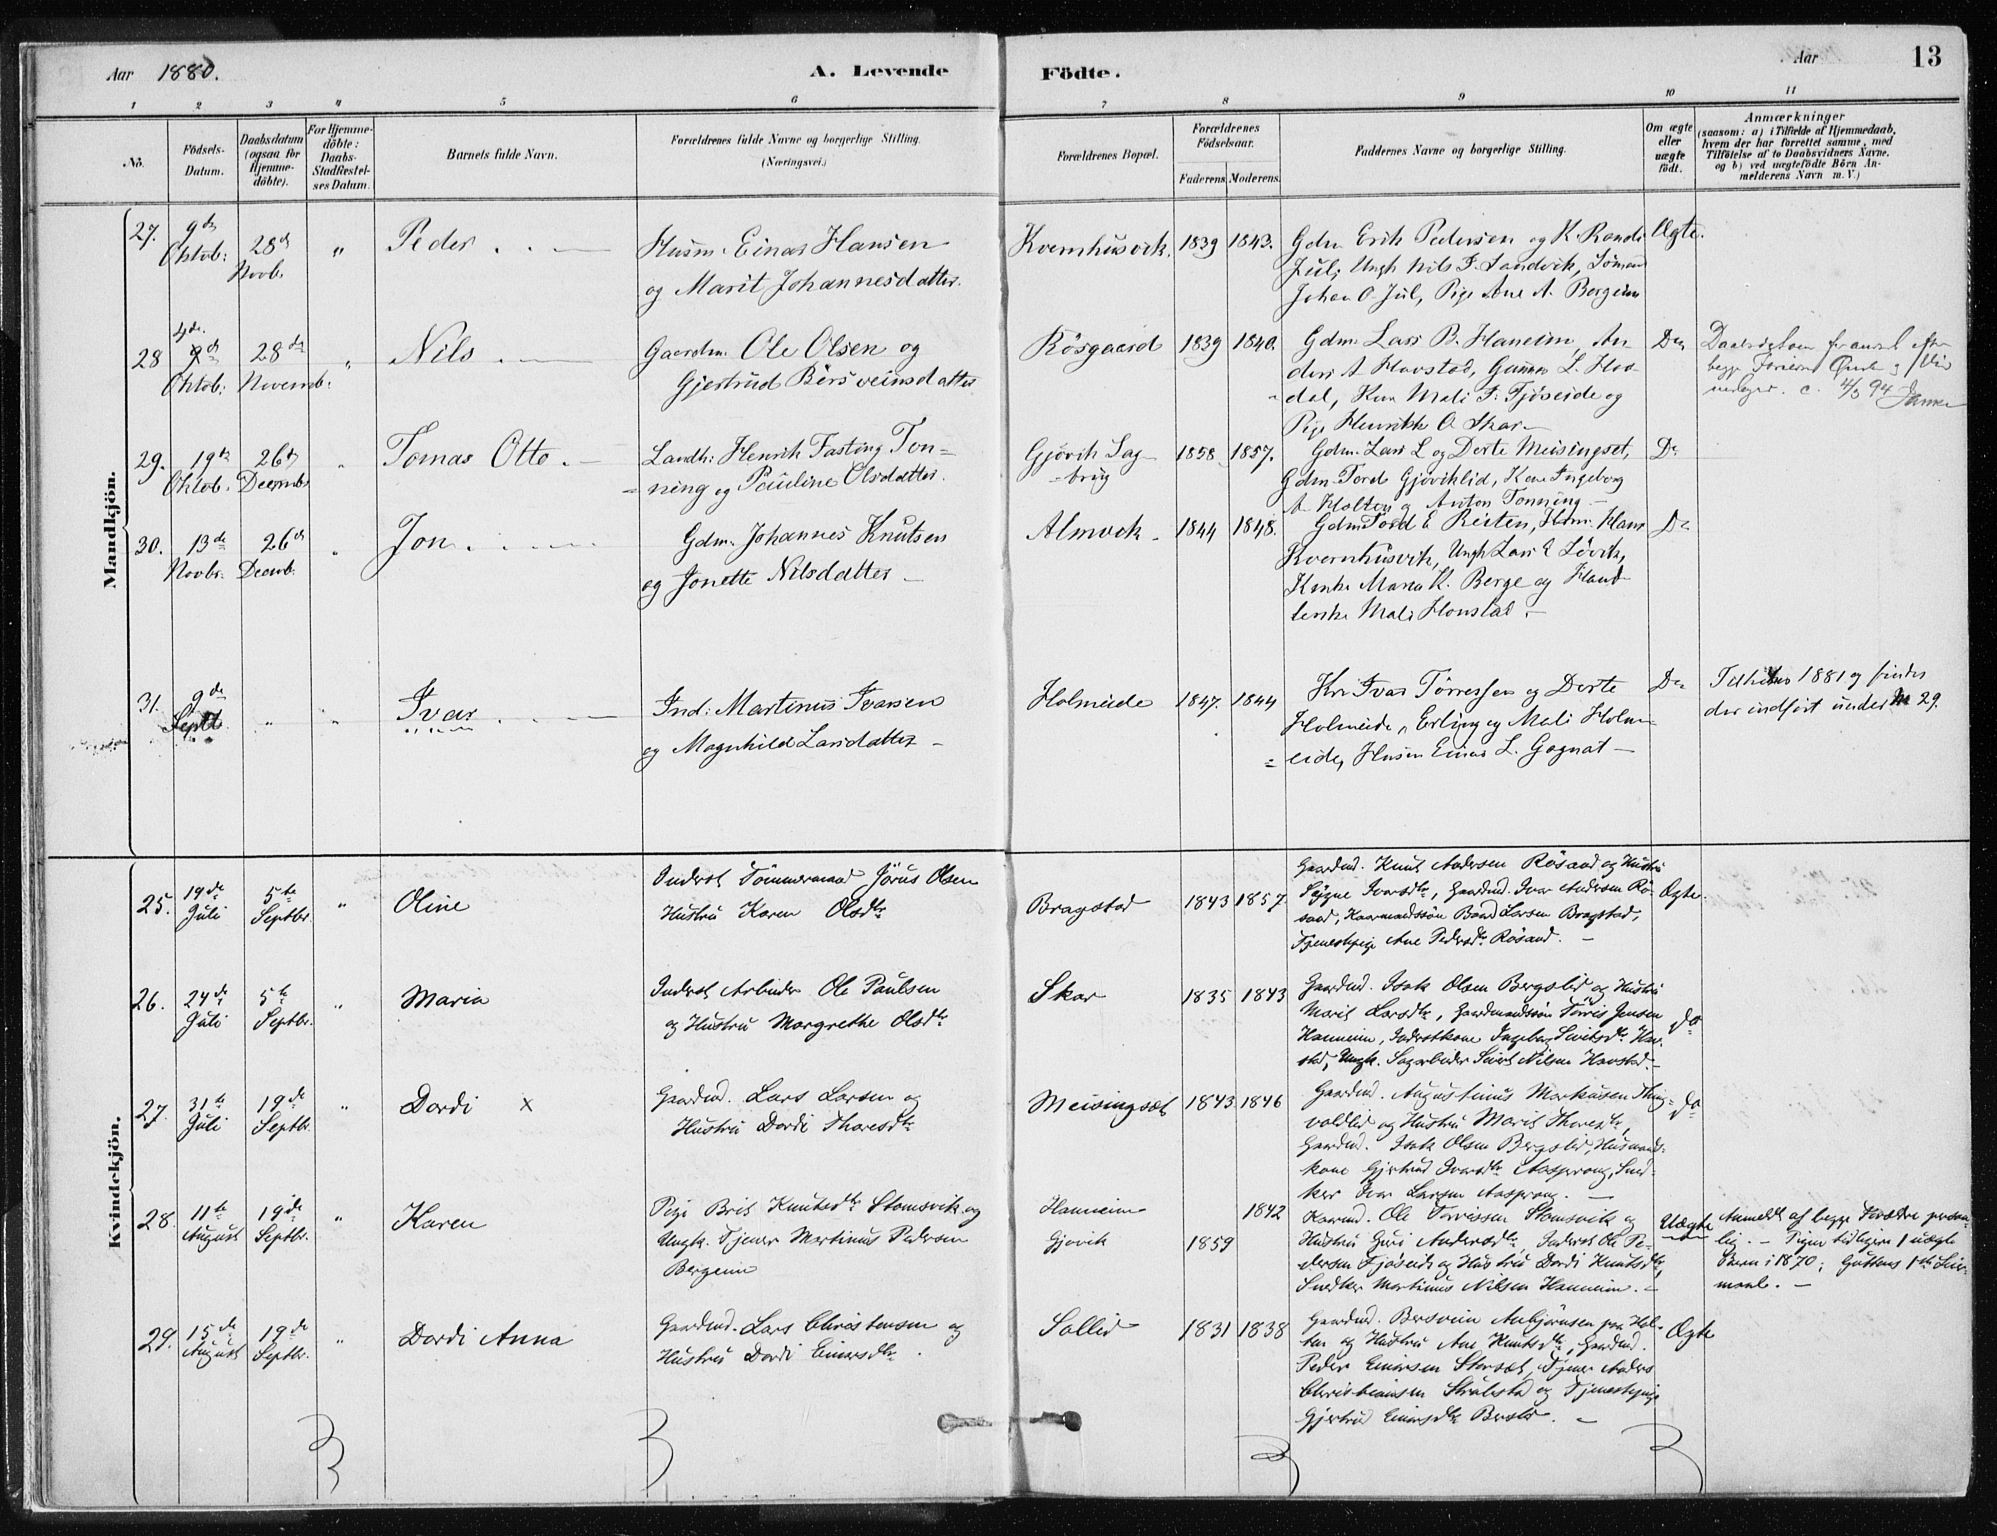 Aar 1880.
A. Levende
Födte.
Aar
13
1 2 3 4 5 6 7 8 9 10 11
No.
Födsels-
Datum.
Daabsdatum
(ogsaa for
Hjemme-
döbte).
For Hjemme-
döbte:
Daabs-
Stadfæstel-
ses Datum.
Barnets fulde Navn.
Forældrenes fulde Navne og borgerlige Stilling.
(Næringsvei.)
Forældrenes Bopæl.
Forældrenes
Födselsaar.
Faderens. Moderens.
Faddernes Navne og borgerlige Stilling.
Om ægte
eller
uægte
födt.
Anmærkninger
(saasom: a) i Tilfælde af Hjemmedaab,
hvem der har forrettet samme, med
Tilföielse af to Daabsvidners Navne,
og b) ved uægtefödte Börn An-
melderens Navn m. V.)
Mandkjön.
27. 9de Oktob: 28de Novb. " Peder
Husm. Einar Hansen
og Marit Johannesdatter.
Kvernhusvik. 1839 1843.
Gdm. Erik Pedersen og K. Randi
Jul, Ungk Nils F. Sandvik, Sömand
Johan O. Jul, Pige Ane A. Bergeim
Ægte.
28 4de Oktob: 28de Novemb: " Nils
Gaardm. Ole Olsen og
Gjertrud Bersveinsdatter
Rösgaard 1839 1840.
Gdm. Lars B. Haneim, An
ders A Havstad, Gunnar L. Hoa
dal, Kone Mali F. Fjöseide og
Pige Henrikke O. Skar
Do
4/3 94
29. 19de Oktob. 26de Decemb. " Tomas Otto
Landh: Henrik Fasting Ton=
=ning og Pauline Olsdatter.
Gjövik Sag
-brug
1858 1857.
Gdm. Lars L og Dorte Meisingset,
Gdm. Tord Gjöviklid, Kone Ingeborg
A Holten og Anton Tonning
Do
30. 13de Novbr. 26de Decemb. " Jon
Gdm. Johannes Knutsen
og Jonette Nilsdatter
Almvik 1844 1848.
Gdm Tord E Reiten, Husm. Hans
Kvernhusvik, Ungk Lars E Lövik,
Enke Maria K. Berge og Hand
lerske Mali Honstad
Do
31. 9de Septb. " " Ivar
Ind: Martinus Ivarsen
og Magnhild Larsdatter
Holmeide 1847. 1844
Ivar Törressen og Dorte
Holmeide, Erling og Mali Holm
=eide, Husm Einar L. Gagnat
Do
Tilhører 1881 og findes
der indfört under No 29.
Kvindekjön.
25. 19de Juli 5te Septbr. " Oline
Inderst Tömmermand Jörus Olsen
Hustru Karen Olsdtr
Bragstad 1843 1857
Gaardmd. Knut Andersen Rösand og Hustru
Sögne Ivarsdtr, Gaardmd. Ivar Andersen Rö-
sand, Kaarmandssön Baard Larsen Bragstad,
Tjenestepige Ane Pedersdtr Rösand.
Ægte.
26. 24de Juli 5te Septbr. " Maria
Inderst Arbeider Ole Paulsen
og Hustru Margrethe Olsdtr
Skar 1835 1843
Gaardmd. Isak Olsen Bergslid og Hustru
Marit Larsdtr, Gaardmandssön Törris Jensen
Hanneim, Inderstkone Ingebor Sivertsdtr. Hav-
stad, Ungk. Sagarbeider Sivert Nilsen Havstad.
do
27. 31te Juli 19de Septbr. " Dordi x
Gaardmd. Lars Larsen og
Hustru Dordi Thoresdtr
Meisingsæt 1843 1846
Gaardmd. Augustinus Markusen Thing-
voldlid og Hustru Marit Thoresdtr,
Gaardmd. Isak Olsen Bergslid, Husmands-
kone Gjertrud Ivarsdtr Aasprong, Sned-
ker Ivar Larsen Aasprong.
do
28. 11te August 19de Septbr. " Karen
Pige Brit Knutsdtr Stomsvik og
Ungk. Tjener Martinus Pedersen
Bergeim
Hanneim 1842
Gjövik 1859
Kaarmd. Ole Torrissen Stomsvik og
Hustru Guri Andersdtr, Inderst Ole Pe-
dersen Fjöseide og Hustru Dordi Knutsdtr,
Snedker Martinus Nilsen Hanneim.
Uægte
Anmeldt af begge Forældre person-
lig. - Pigen tidligere 1 uægte
Barn i 1870; Guttens 1ste Leier-
maal.
29. 15de August 19de Septbr. " Dordi Anna
Gaardmd. Lars Christensen og
Hustru Dordi Einersdtr.
Sollid 1831 1838
Gaardmd. Bersvein Anbjörnsen paa Hol-
ten og Hustru Ane Knutsdtr, Gaardmd.
Peder Einersen Storsæt, Tjener Anders
Christiansen Strålsta og Tjenestepige
Gjertrud Einersdtr
Ægte